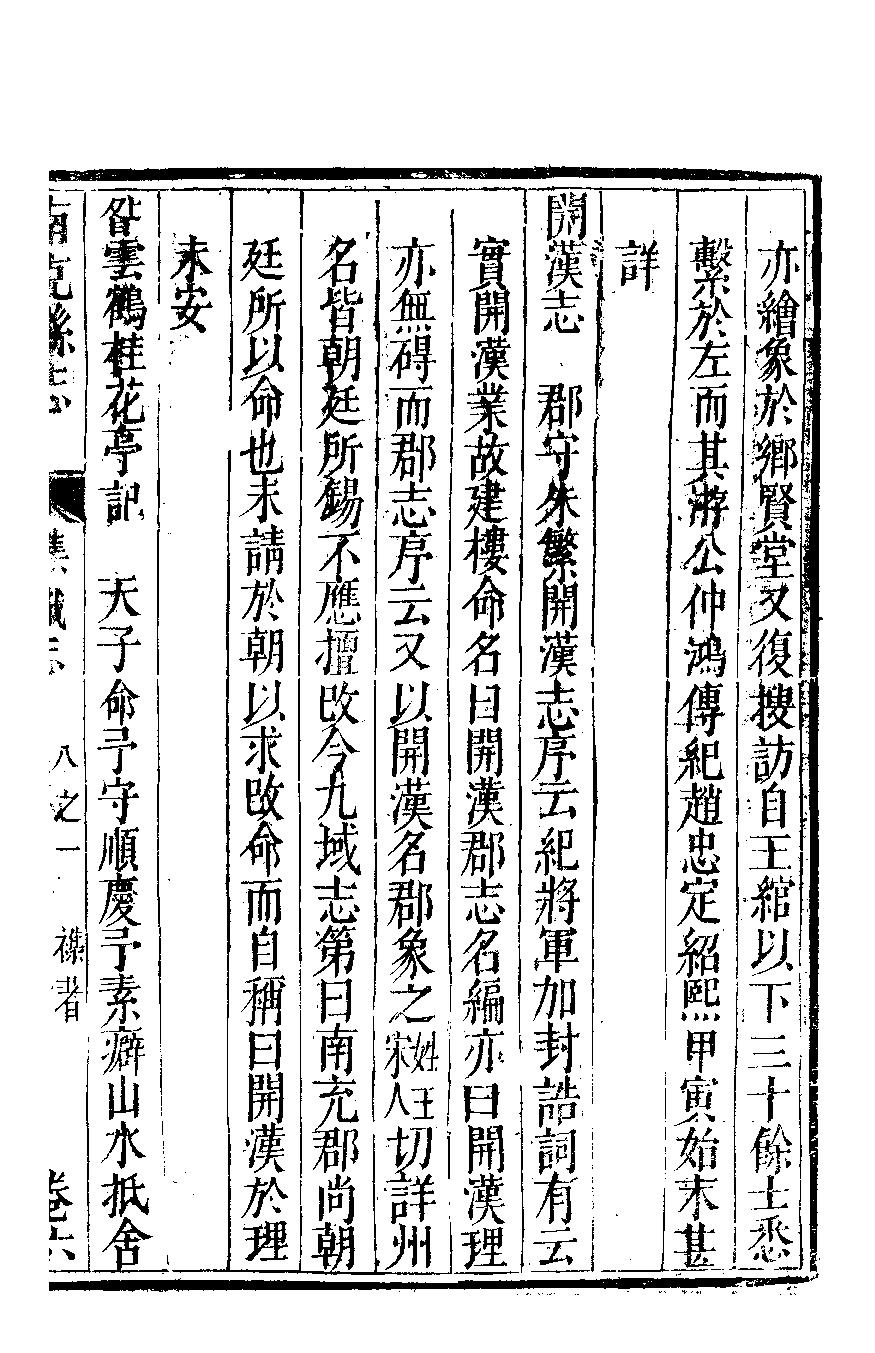 亦繪象於鄉賢堂又復搜訪自王綰以下三十餘士悉
繫於左而其游公仲鴻傳紀趙忠定紹熙甲寅始末甚
詳
開漢志　郡守朱繁開漢志序云紀將軍加封誥詞有云
實開漢業故建樓命名曰開漢郡志名編亦曰開漢理
亦無碍而郡志序云又以開漢名郡象之姓王宋人切詳州
名皆朝廷所錫不應擅改今九域志第曰南充郡尚朝
廷所以命也未請於朝以求改命而自稱曰開漢於理
未安
昝雲鶴桂花亭記　天子命予守順慶予素癖山水抵舍
南充縣志　集識志　八之一　襍著　卷六